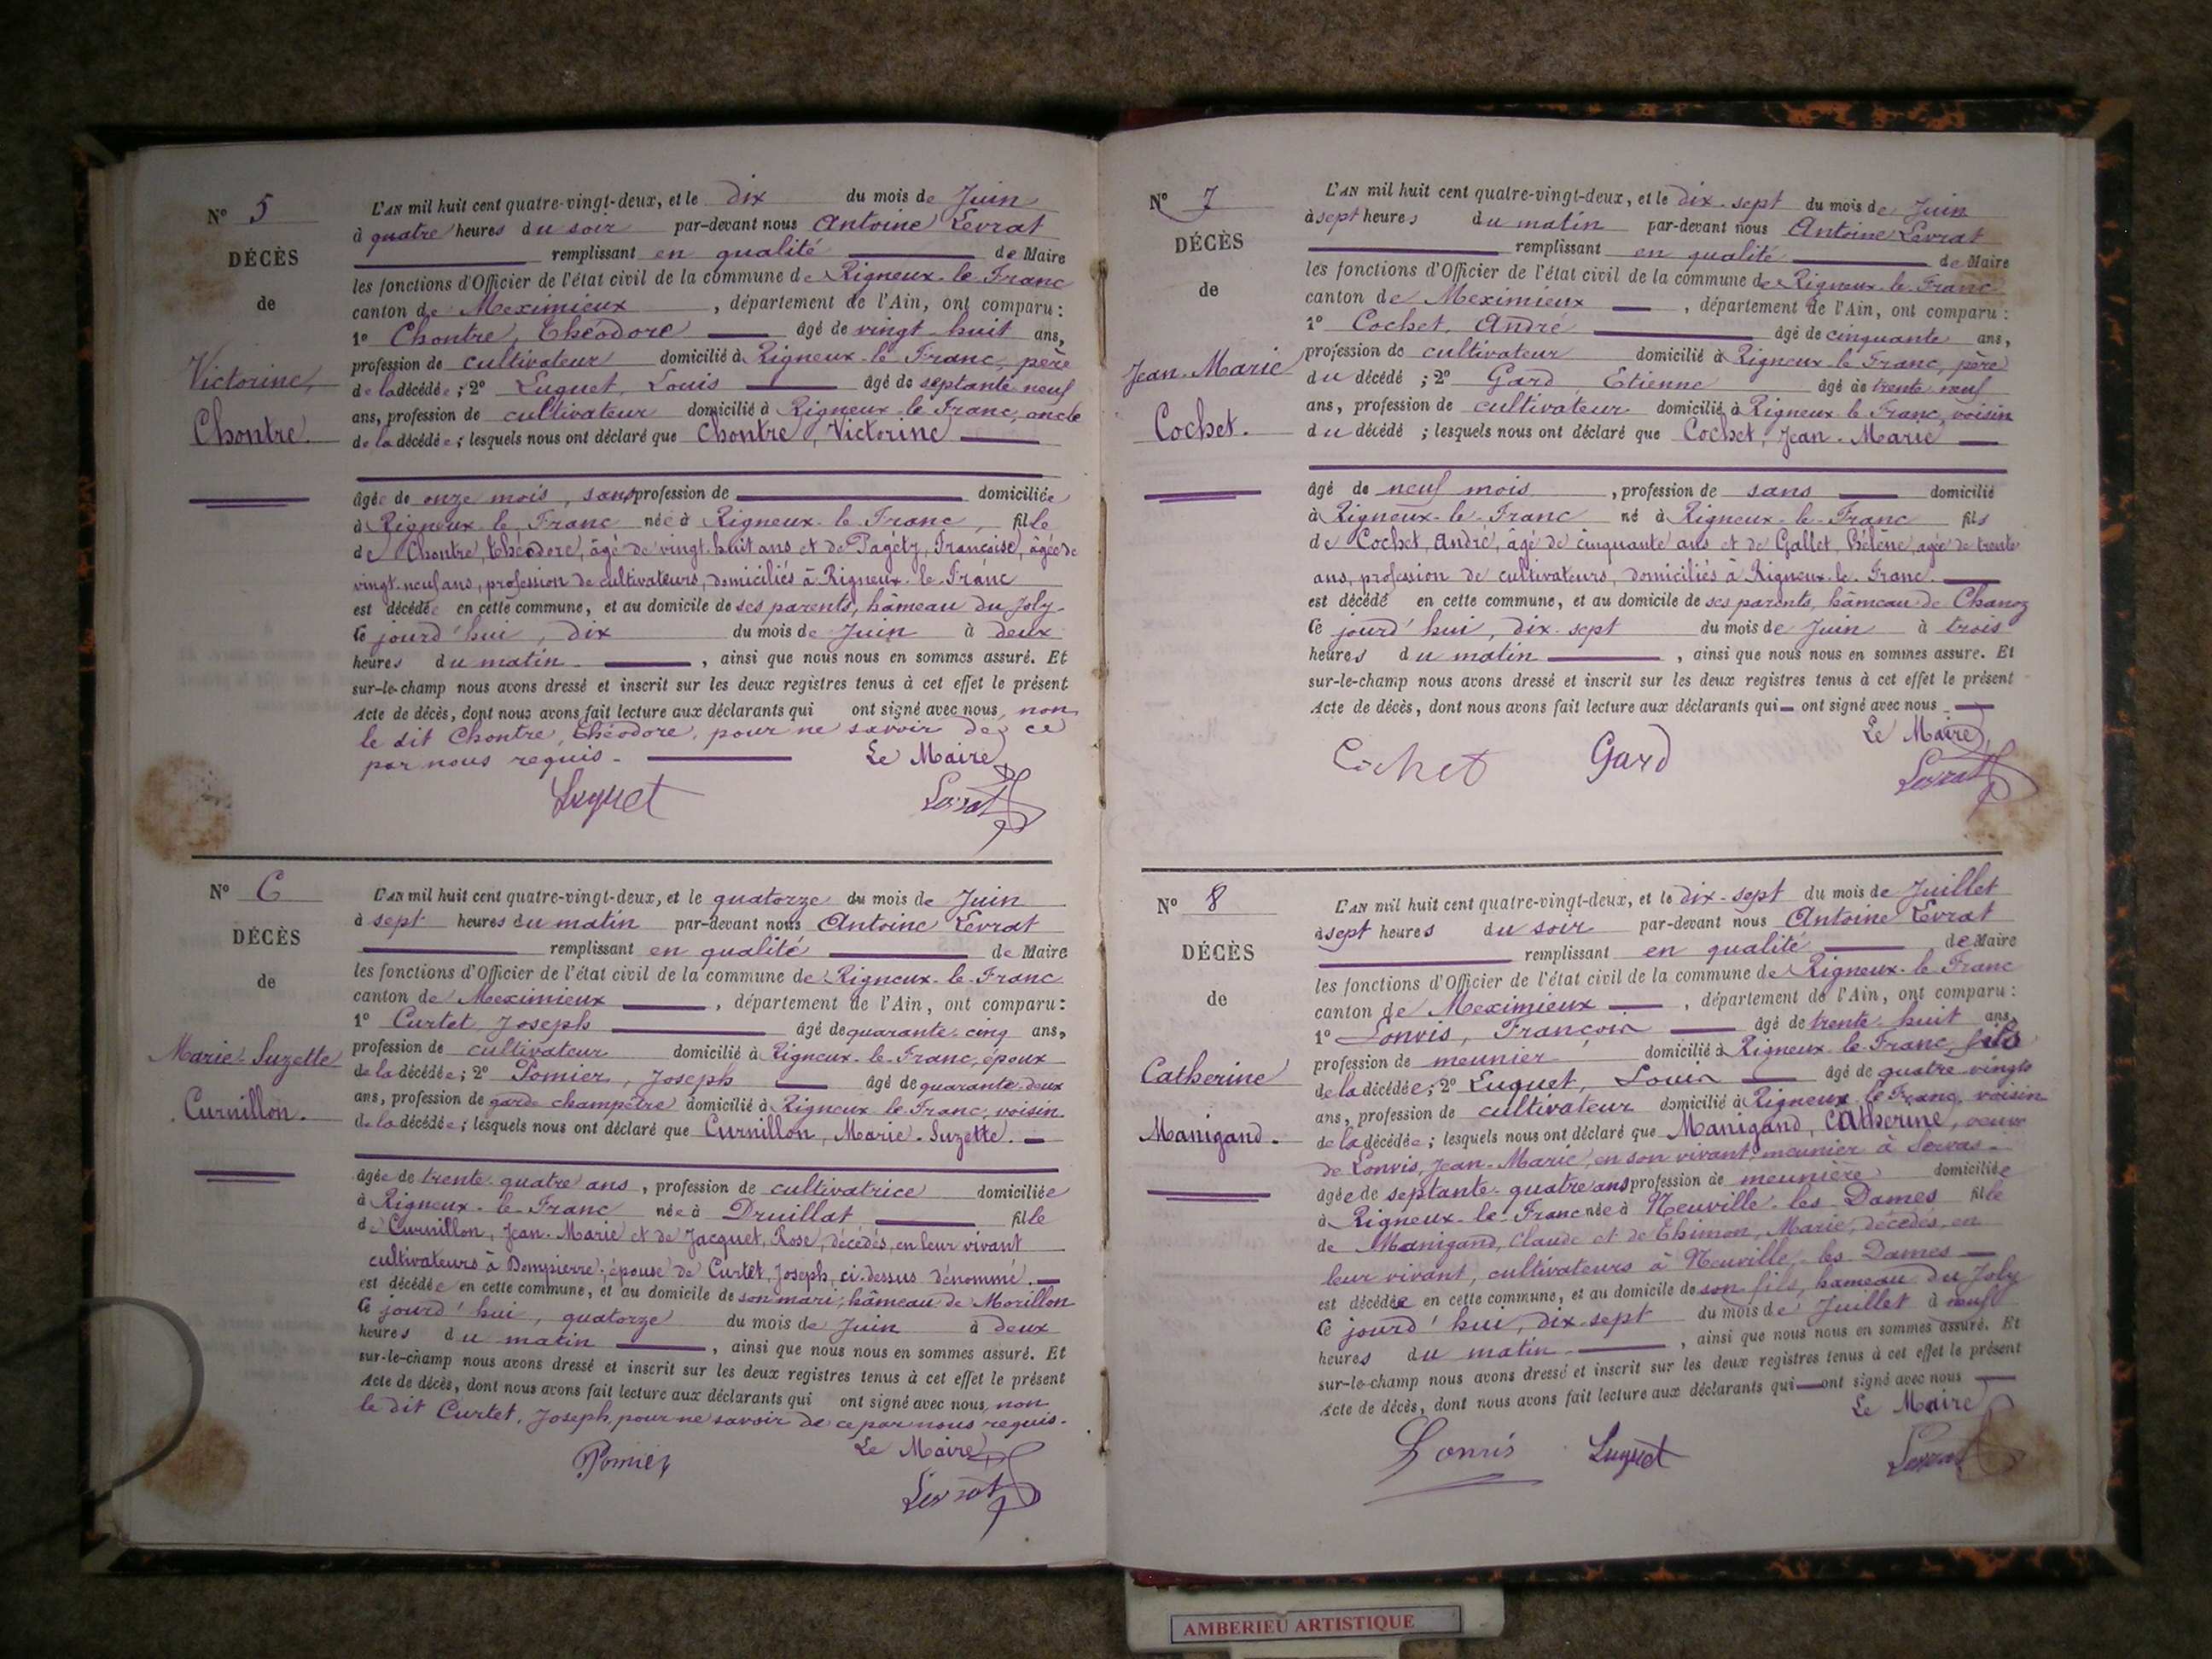 N° 5
DÉCÈS
de
Victorine
Chontre.
L'AN mil huit cent quatre-vingt-deux, et le dix du mois de Juin
à quatre heures du soir par-devant nous Antoine Levrat
remplissant en qualité de Maire
les fonctions d'Officier de l'état civil de la commune de Rigneux-le-Franc
canton de Meximieux, département de l'Ain, ont comparu :
1° Chontre, Théodore âgé de vingt-huit ans,
profession de cultivateur domicilié à Rigneux-le-Franc, père
de la décédée ; 2° Luguet, Louis âgé de septante neuf
ans, profession de cultivateur domicilié à Rigneux-le-Franc, oncle
de la décédée ; lesquels nous ont déclaré que Chontre, Victorine
âgée de onze mois, sans profession de domiciliée
à Rigneux-le-Franc née à Rigneux-le-Franc, fille
de Chontre, Théodore, âgé de vingt-huit ans et de Pagétz, Françoise, âgée de
vingt-neuf ans, profession de cultivateurs, domiciliés à Rigneux-le-Franc
est décédée en cette commune, et au domicile de ses parents, hâmeau du Joly
Ce jourd'hui, dix du mois de Juin à deux
heures du matin, ainsi que nous nous en sommes assuré. Et
sur-le-champ nous avons dressé et inscrit sur les deux registres tenus à cet effet le présent
Acte de décès, dont nous avons fait lecture aux déclarants qui ont signé avec nous, non
le dit Chontre, Théodore, pour ne savoir de ce
par nous requis.
Le Maire
Luguet
Levrat
N° 6
DÉCÈS
de
Marie-Suzette
Curnillon.
L'AN mil huit cent quatre-vingt-deux, et le quatorze du mois de Juin
à sept heures du matin par-devant nous Antoine Levrat
remplissant en qualité de Maire
les fonctions d'Officier de l'état civil de la commune de Rigneux-le-Franc
canton de Meximieux, département de l'Ain, ont comparu :
1° Curtet, Joseph âgé de quarante-cinq ans,
profession de cultivateur domicilié à Rigneux-le-Franc, époux
de la décédée ; 2° Pomier, Joseph âgé de quarante-deux
ans, profession de garde champêtre domicilié à Rigneux-le-Franc, voisin
de la décédée ; lesquels nous ont déclaré que Curnillon, Marie-Suzette.
âgée de trente-quatre ans, profession de cultivatrice domiciliée
à Rigneux-le-Franc née à Druillat fille
de Curnillon, Jean-Marie et de Jacquet, Rose, décédés, en leur vivant
cultivateurs à Dompierre, épouse de Curtet, Joseph, ci-dessus dénommé.
est décédée en cette commune, et au domicile de son mari, hâmeau de Morillon
Ce jourd'hui, quatorze du mois de Juin à deux
heures du matin, ainsi que nous nous en sommes assuré. Et
sur-le-champ nous avons dressé et inscrit sur les deux registres tenus à cet effet le présent
Acte de décès, dont nous avons fait lecture aux déclarants qui ont signé avec nous, non
le dit Curtet, Joseph, pour ne savoir de ce par nous requis.
Le Maire
Pomier
Levrat
N° 7
DÉCÈS
de
Jean-Marie
Cochet.
L'AN mil huit cent quatre-vingt-deux, et le dix-sept du mois de Juin
à sept heures du matin par-devant nous Antoine Levrat
remplissant en qualité de Maire
les fonctions d'Officier de l'état civil de la commune de Rigneux-le-Franc
canton de Meximieux, département de l'Ain, ont comparu :
1° Cochet, André âgé de cinquante ans,
profession de cultivateur domicilié à Rigneux-le-Franc, père
du décédé ; 2° Gard, Etienne âgé de trente neuf
ans, profession de cultivateur domicilié à Rigneux-le-Franc, voisin
du décédé ; lesquels nous ont déclaré que Cochet, Jean-Marie
âgé de neuf mois, profession de sans domicilié
à Rigneux-le-Franc né à Rigneux-le-Franc fils
de Cochet, André, âgé de cinquante ans et de Gallet, Hélène, agée de trente
ans, profession de cultivateurs, domiciliés à Rigneux-le-Franc.
est décédé en cette commune, et au domicile de ses parents, hâmeau de Chanoz
Ce jourd'hui, dix-sept du mois de Juin à trois
heures du matin, ainsi que nous nous en sommes assuré. Et
sur-le-champ nous avons dressé et inscrit sur les deux registres tenus à cet effet le présent
Acte de décès, dont nous avons fait lecture aux déclarants qui ont signé avec nous
Le Maire
Cochet Gard
Levrat
N° 8
DÉCÈS
de
Catherine
Manigand.
L'AN mil huit cent quatre-vingt-deux, et le dix-sept du mois de Juillet
à sept heures du soir par-devant nous Antoine Levrat
remplissant en qualité de Maire
les fonctions d'Officier de l'état civil de la commune de Rigneux-le-Franc
canton de Meximieux, département de l'Ain, ont comparu :
1° Lonvis, François âgé de trente-huit ans,
profession de meunier domicilié à Rigneux-le-Franc, fils
de la décédée ; 2° Luguet, Louis âgé de quatre-vingts
ans, profession de cultivateur domicilié à Rigneux-le-Franc, voisin
de la décédée ; lesquels nous ont déclaré que Manigand, Catherine, veuve
de Lonvis, Jean-Marie, en son vivant meunier à Servas
âgée de septante-quatre ans profession de meunière domiciliée
à Rigneux-le-Franc née à Neuville-les-Dames fille
de Manigand, Claude et de Thimon, Marie, décédés, en
leur vivant, cultivateurs à Neuville-les-Dames
est décédée en cette commune, et au domicile de son fils, hameau du Joly
Ce jourd'hui, dix-sept du mois de Juillet à neuf
heures du matin, ainsi que nous nous en sommes assuré. Et
sur-le-champ nous avons dressé et inscrit sur les deux registres tenus à cet effet le présent
Acte de décès, dont nous avons fait lecture aux déclarants qui ont signé avec nous
Le Maire
Lonvis Luguet
Levrat
AMBERIEU ARTISTIQUE